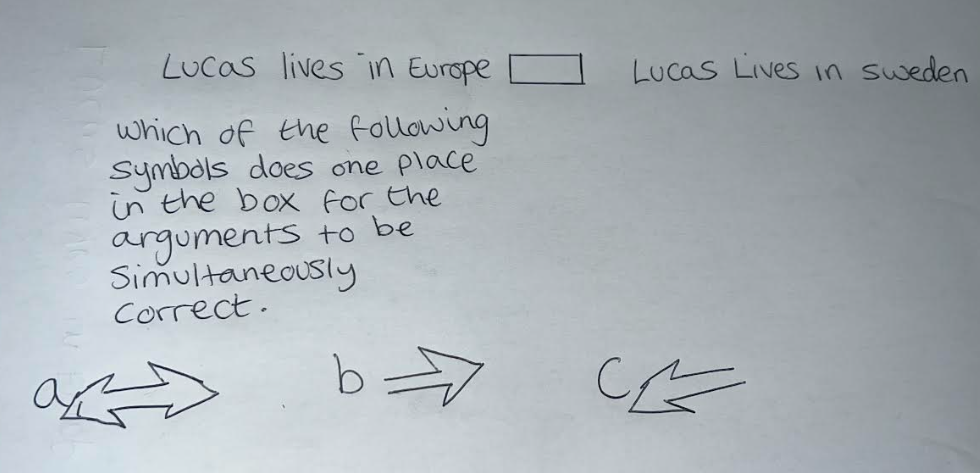 Lucas lives in Europe Lucas Lives in sweden
which of the following
symbols does one place
in the box for the
arguments to be
simultaneously
correct.
a b c